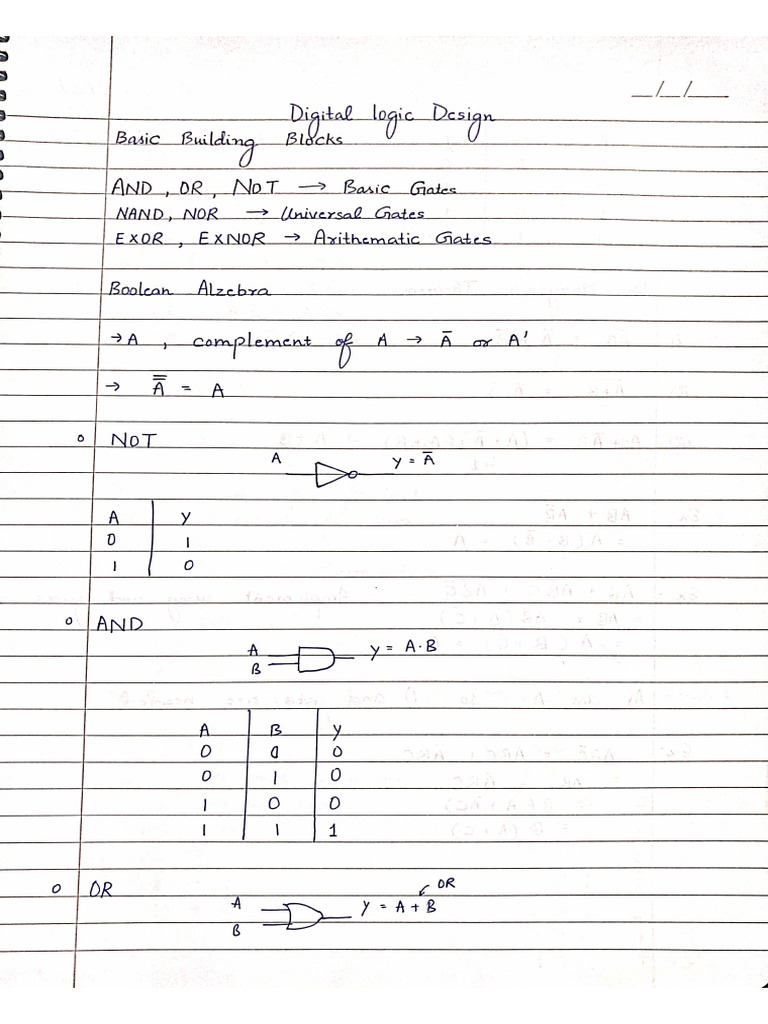 _/_/__
Digital logic Design
Basic Building Blocks
AND, OR, NOT → Basic Gates
NAND, NOR → Universal Gates
EXOR, EXNOR → Arithematic Gates
Boolean Alzebra
→ A, complement of A → A̅ or A'
→ A̿ = A
o NOT
A Y = A̅
A Y
0 1
1 0
o AND
A
B
Y = A·B
A B Y
0 0 0
0 1 0
1 0 0
1 1 1
o OR
OR
A
B
Y = A + B